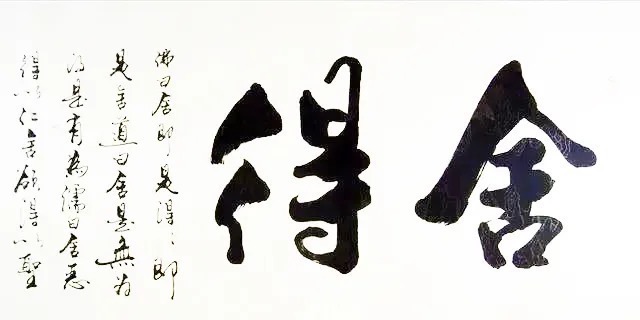 舍得
佛曰舍即是得〻即
是舍道曰舍是無为
得是有為儒曰舍恶
得以仁舍欲得以聖